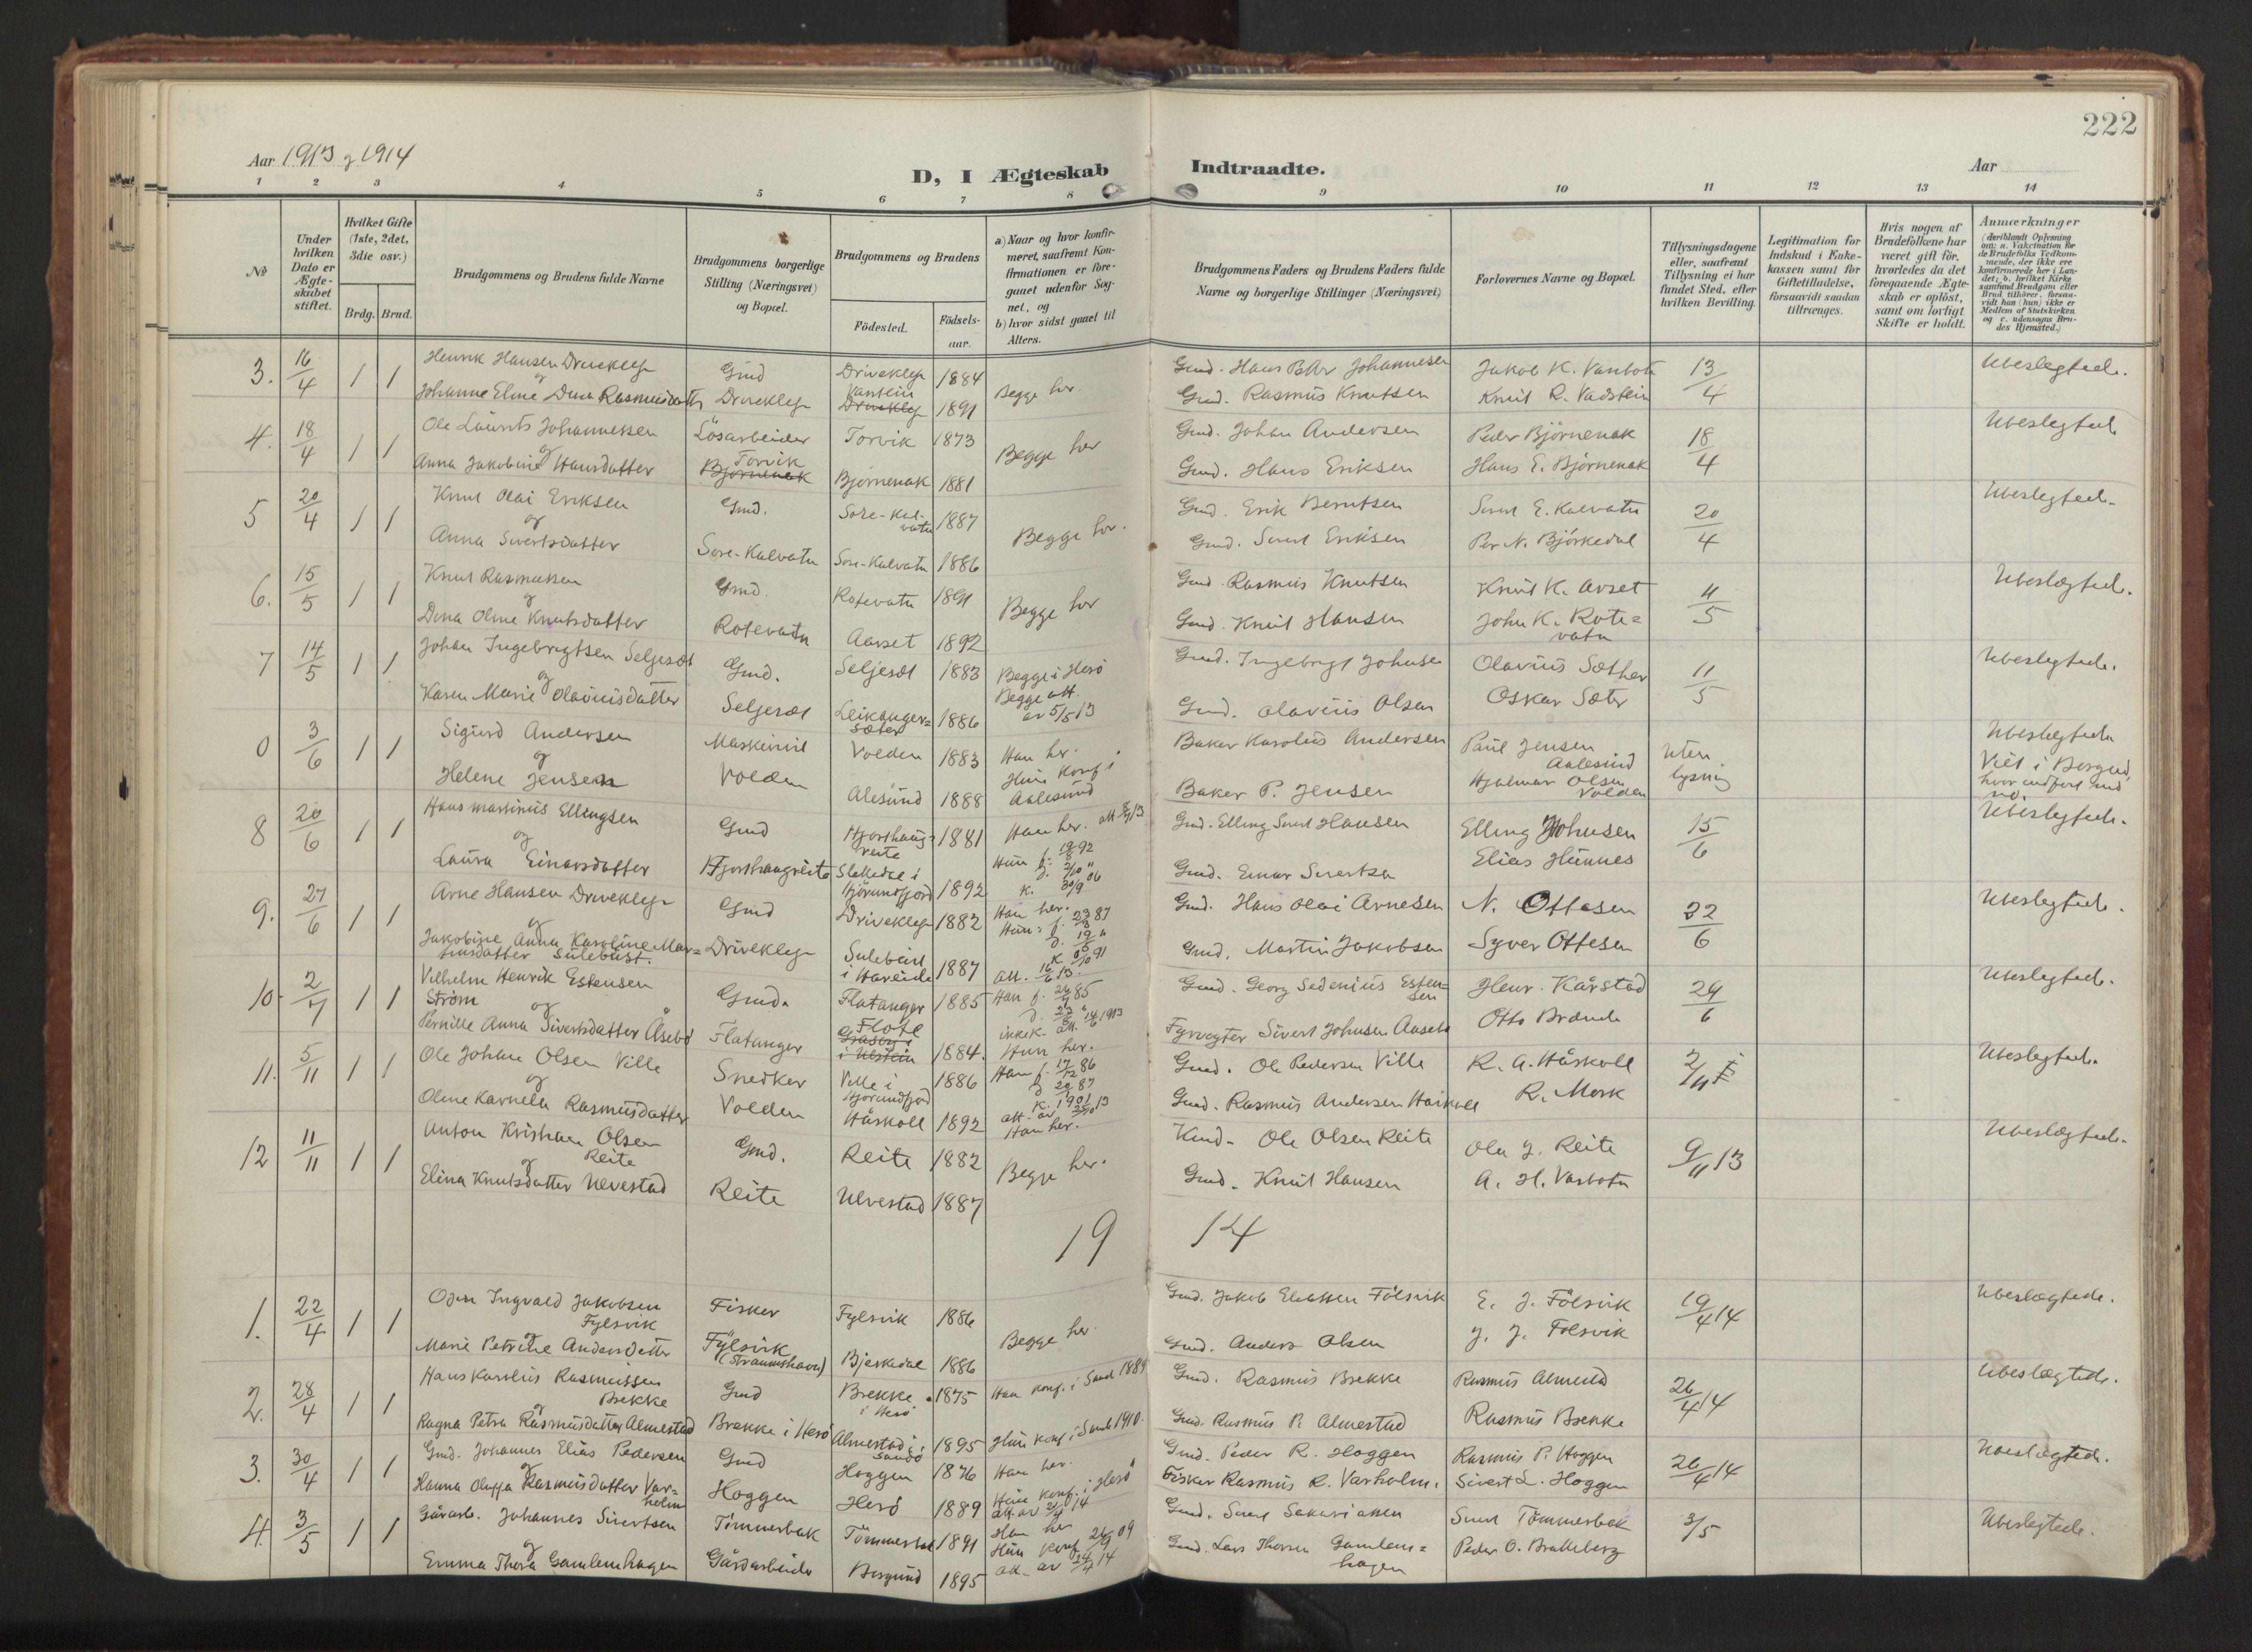 222
Aar 1913 og 1914
D, I Ægteskab Indtraadte.
Aar
1 2 3 4 5 6 7 8 9 10 11 12 13 14
No
Under hvilken Dato er Ægteskabet stiftet.
Hvilket Gifte (1ste, 2det, 3die osv.)
Brdg. Brud.
Brudgommens og Brudens fulde Navne
Brudgommens borgerlige Stilling (Næringsvei) og Bopæl.
Brudgommens og Brudens
Födested.
Födsels-aar.
a) Naar og hvor konfirmeret, saafremt Konfirmationen er foregaaet udenfor Sognet, og
b) hvor sidst gaaet til Alters.
Brudgommens Faders og Brudens Faders fulde Navne og borgerlige Stillinger (Næringsvei)
Forlovernes Navne og Bopæl.
Tillysningsdagene eller, saafremt Tillysning ei har fundet Sted, efter hvilken Bevilling.
Legitimation for Indskud i Enkekassen samt for Giftetilladelse, forsaavidt saadan tiltrænges.
Hvis nogen af Brudefolkene har været gift för, hvorledes da det foregaaende Ægteskab er oplöst, samt om lovligt Skifte er holdt.
Anmærkninger
(deriblandt Oplysning om: a. Vakcination for de Brudefolks Vedkommende, der ikke ere konfirmerede her i Landet; b. hvilket Kirkesamfund Brudgom eller Brud tilhörer, forsaavidt han (hun) ikke er Medlem af Statskirken, og c. udensogns Brudes Hjemsted.)
3. 16/4 1 1 Henrik Hansen Driveklep Gmd Driveklep 1884 Begge her. Gmd. Hans Peter Johannesen Jakob K. Vanbotn 13/4 Ubeslegtede.
og
Johanne Eline Dina Rasmusdatter Driveklep Vanstein Driveklep 1891 Gmd. Rasmus Knutsen Knut R. Vadstein
4. 18/4 1 1 Ole Laurits Johannessen Lösarbeider Torvik 1873 Begge her Gmd. Johan Andersen Peder Björnenak 18/4 Ubeslegtede
og
Anna Jakobine Hansdatter Torvik Björnenak Björnenak 1881 Gmd. Hans Eriksen Hans E. Björnenak
5 20/4 1 1 Knut Olai Eriksen Gmd. Sore-Kalvatn 1887 Begge her. Gmd. Erik Berntsen Sivert E. Kalvatn 20/4 Ubeslegtede.
og
Anna Sivertsdatter Sore-Kalvatn Sore-Kalvatn 1886 Gmd. Sivert Eriksen Per N. Björkedal
6. 15/5 1 1 Knut Rasmussen Gmd. Rotevatn 1891 Begge her Gmd. Rasmus Knutsen Knut K. Avset 11/5 Ubeslægtede.
og
Dina Oline Knutsdatter Rotevatn Aarset 1892 Gmd. Knut Hansen John K. Rote=vatn
7 14/5 1 1 Johan Ingebrigtsen Seljesæt Gmd. Seljeset 1883 Begge i Herö Gmd. Ingebrigt Johnsen Olavius Sæther 11/5 Ubeslegtede.
og
Karen Marie Olaviusdatter Seljeset Leikanger=sæter 1886 Begge att. av 5/5 13 Gmd. Olavius Olsen Oskar Sæter
0 3/6 1 1 Sigurd Andersen Maskinist Volden 1883 Han her. Baker Karolius Andersen Paul Jensen Aalesund Uten lysning Ubeslegtede
og
Helene Jensen Volden Alesund 1888 Hun konf i Aalesund Baker P. Jensen Hjalmar Olsen Volden Viet i Borgund, hvor indfört
8 20/6 1 1 Hans Martinus Ellingsen Gmd Hjorthaug=reite 1881 Han her. Gmd. Elling Sivert Hansen Elling Johnsen 15/6 Ubeslegtede.
og
Laura Einarsdatter Hjorthaugreite Slettedal i Hjörundfjord 1892 Gmd. Einar Sivertsen Elias Hunnes
9. 27/6 1 1 Arne Hansen Driveklep Gmd Driveklep 1882 Han her. Gmd. Hans Olai Arnesen N. Ottesen 22/6 Ubeslegtede.
og
Jakobine Anna Karoline Mar=tinsdatter Sulebust. Driveklep Sulebust i Hareide 1887 att. 16/6 13. Gmd. Martin Jakobsen Syver Ottesen
10. 2/7 1 1 Vilhelm Henrik Estensen Ström Gmd. Flatanger 1885 Gmd. Georg Sedenius Esten=sen Henr. Kårstad 29/6 Ubeslegtede.
og
Pernille Anna Sivertsdatter Åsebö Flatanger Flote i Ulstein 1884. Hun her. Fyrvogter Sivert Johnsen Aasebö Otto Brænde
11. 5/11 1 1 Ole Johan Olsen Ville Snedker Ville i Hjörundfjord 1886 Gmd. Ole Pedersen Ville R. A. Håskoll 2/11 Ubeslegtede.
og
Oline Karnela Rasmusdatter Volden Håskoll 1892 Gmd. Rasmus Andersen Håskoll R. Mork
12 11/11 1 1 Anton Kristian Olsen Reite Gmd. Reite 1882 Begge her. Ole Olsen Reite Ola J. Reite 9/11 13 Ubeslægtede.
og
Elina Knutsdatter Ulvestad Reite Ulvestad 1887 Gmd. Knut Hansen A. H. Varbotn
19 14
1. 22/4 1 1 Ingvald Jakobsen Fylsvik Fisker Fylsvik 1886 Begge her. Gmd. Jakob Fölsvik E. J. Fölsvik 19/4 14 Ubeslægtede.
og
Marie Petrine Andersdatter Fylsvik (Straumshavn) Bjerkedal 1886 Gmd. Anders Olsen J. J. Folsvik
2. 28/4 1 1 Hans Karolius Rasmussen Brekke Gmd Brekke i Herö 1875 Han konf. i Sande 1889 Gmd. Rasmus Brekke Rasmus Almestad 26/4 14 Ubeslægtede.
og
Ragna Petra Rasmusdatter Almestad Brekke i Herö Almestad i Sande 1895 Hun konf i Sande 1910. Gmd. Rasmus P. Almestad Rasmus Brekke
3. 30/4 1 1 Gmd. Johannes Elias Pedersen Gmd Hoggen 1876 Han her. Gmd. Peder R. Hoggen Rasmus P. Hoggen 26/4 14 Ubeslægtede.
og
Hanna Oluffa Rasmusdatter Var=holm Hoggen Herö 1889 Hun konf. i Herö Fisker Rasmus R. Varholm. Sivert L. Hoggen
4. 3/5 1 1 Gårarb. Johannes Sivertsen Tömmerbak Tömmerbak 1891 Han her Gmd. Sivert Sakariassen Sivert Tömmerbak 3/5 Ubeslegtede.
og
Emma Thora Gamlemshagen Gårdarbeider Borgund 1895 Hun konf 26/9 09 att. av 24/4 14 Gmd. Lars Thorsen Gamlem=shagen Peder O. Bratteberg